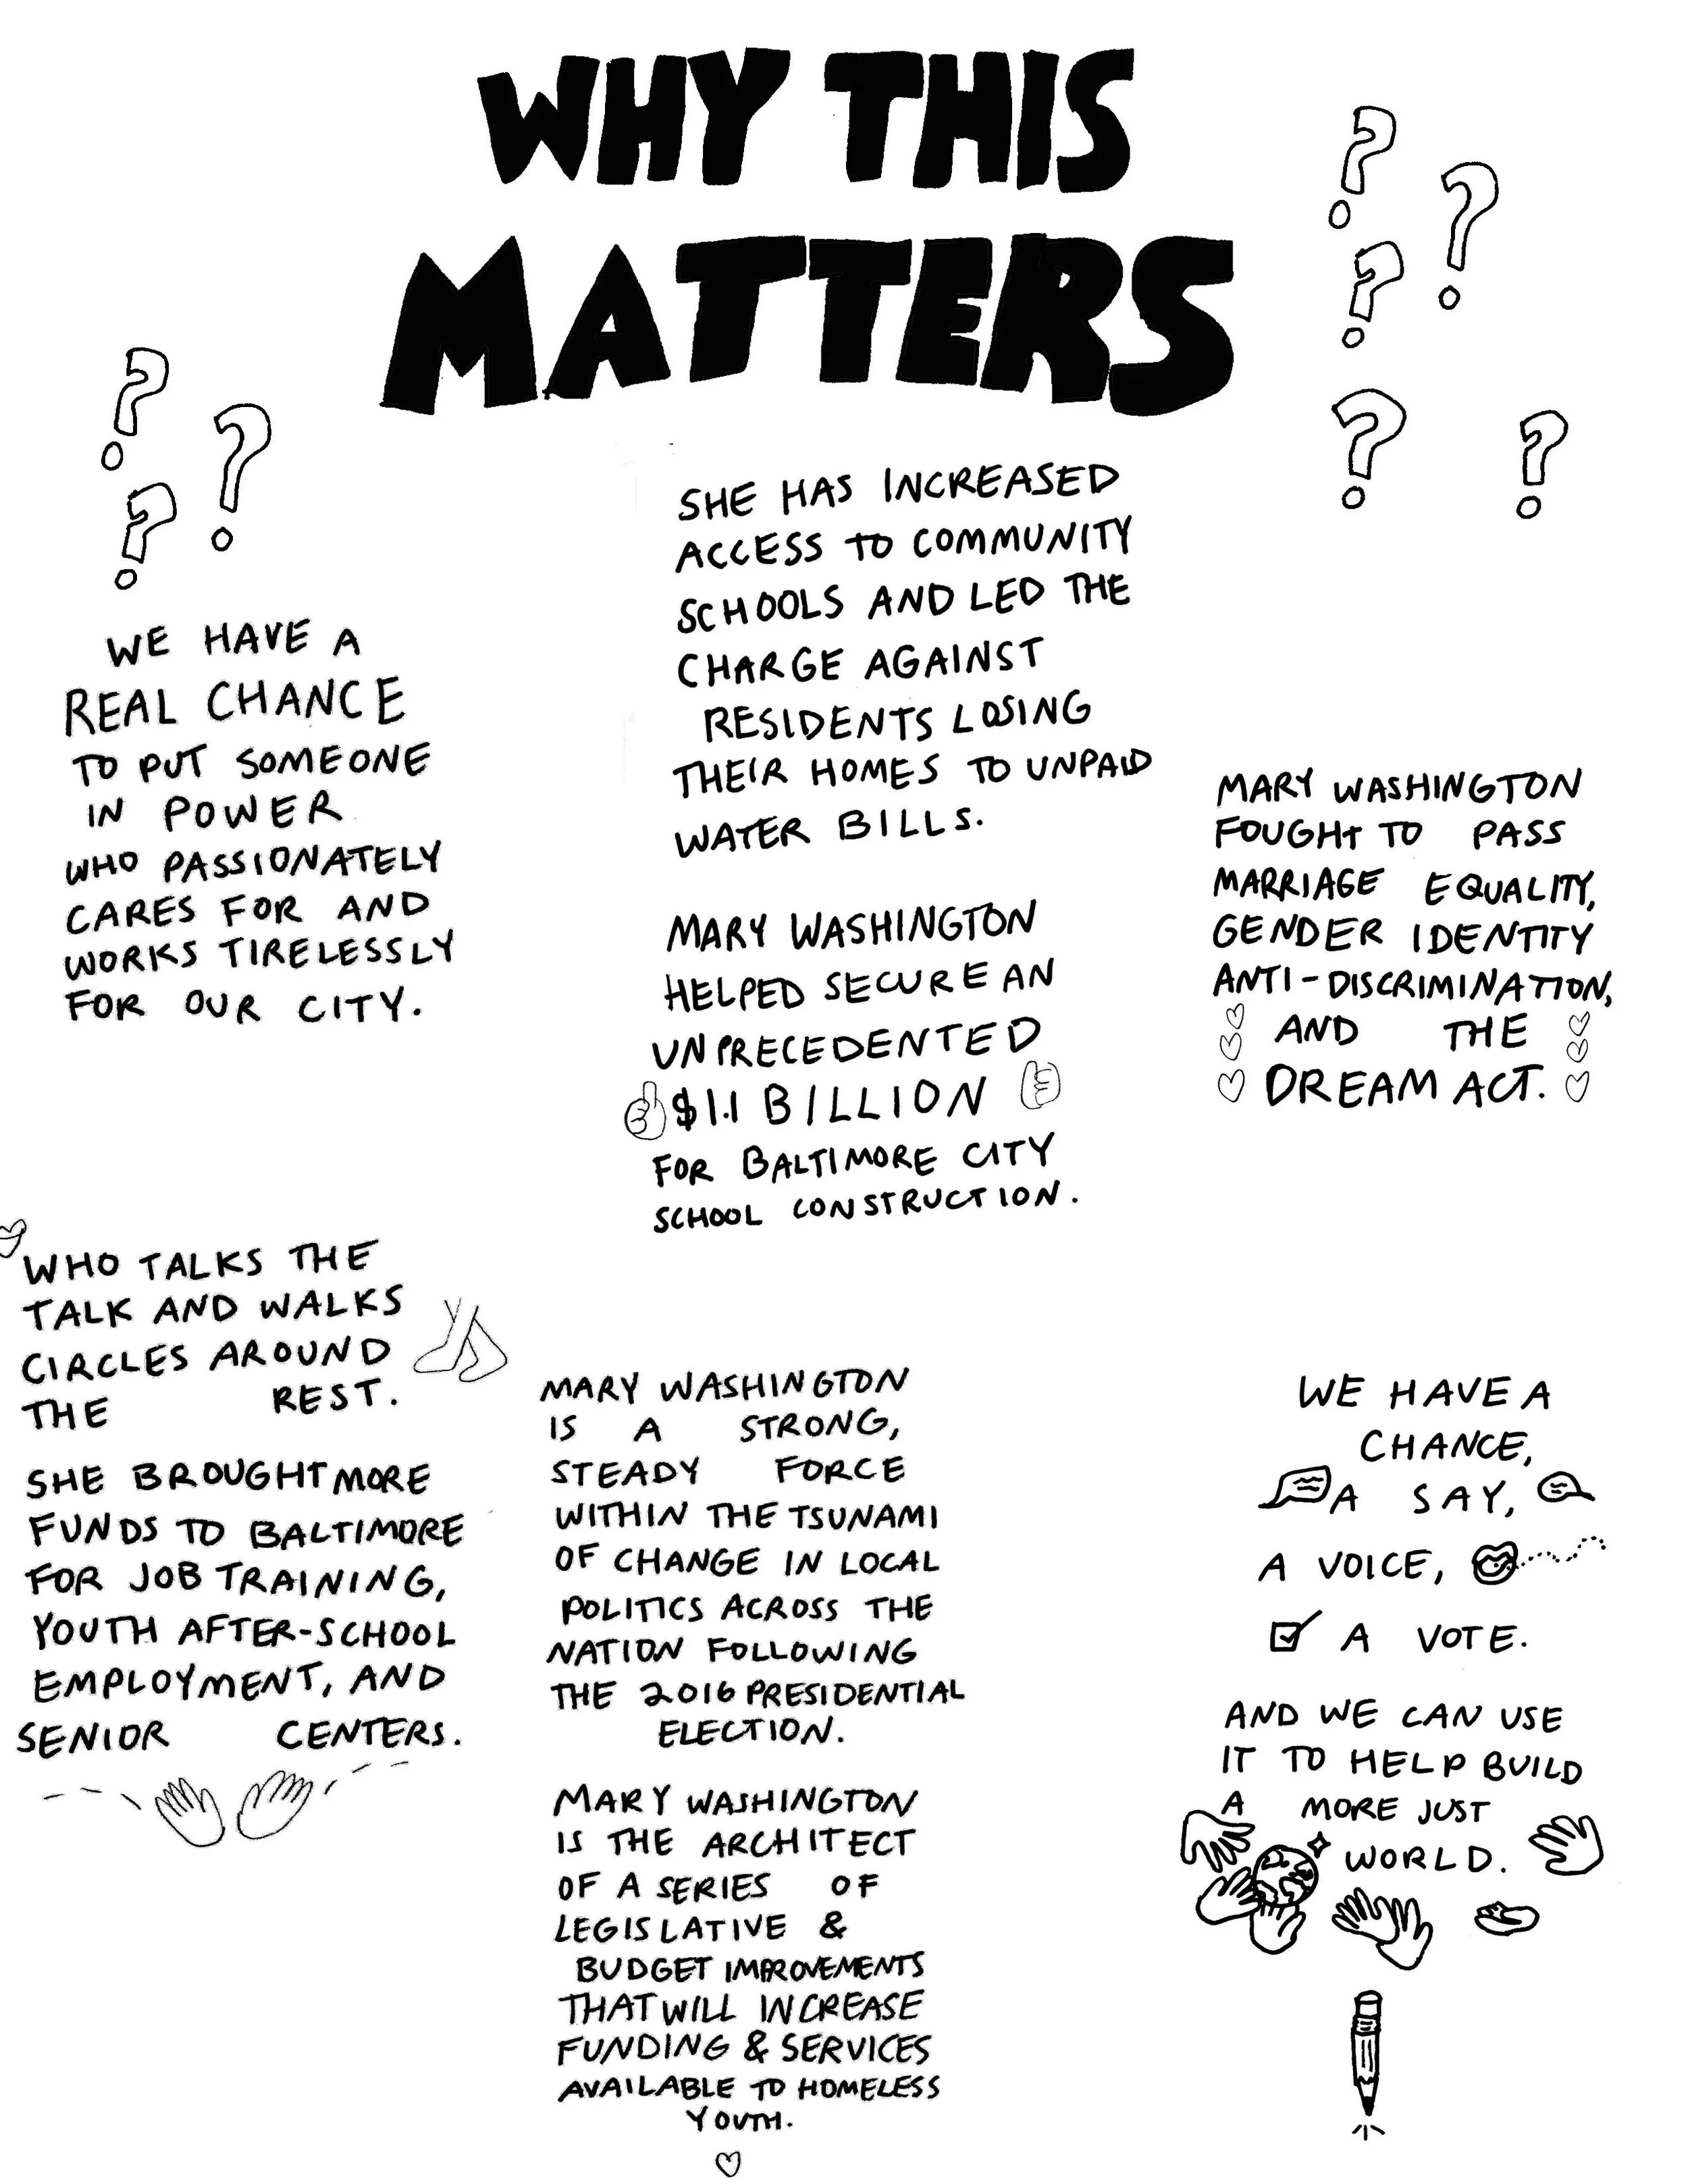 WHY THIS
MATTERS
WE HAVE A
REAL CHANCE
TO PUT SOMEONE
IN POWER
WHO PASSIONATELY
CARES FOR AND
WORKS TIRELESSLY
FOR OUR CITY.
WHO TALKS THE
TALK AND WALKS
CIRCLES AROUND
THE REST.
SHE BROUGHT MORE
FUNDS TO BALTIMORE
FOR JOB TRAINING,
YOUTH AFTER-SCHOOL
EMPLOYMENT, AND
SENIOR CENTERS.
SHE HAS INCREASED
ACCESS TO COMMUNITY
SCHOOLS AND LED THE
CHARGE AGAINST
RESIDENTS LOSING
THEIR HOMES TO UNPAID
WATER BILLS.
MARY WASHINGTON
HELPED SECURE AN
UNPRECEDENTED
$1.1 BILLION
FOR BALTIMORE CITY
SCHOOL CONSTRUCTION.
MARY WASHINGTON
IS A STRONG,
STEADY FORCE
WITHIN THE TSUNAMI
OF CHANGE IN LOCAL
POLITICS ACROSS THE
NATION FOLLOWING
THE 2016 PRESIDENTIAL
ELECTION.
MARY WASHINGTON
IS THE ARCHITECT
OF A SERIES OF
LEGISLATIVE &
BUDGET IMPROVEMENTS
THAT WILL INCREASE
FUNDING & SERVICES
AVAILABLE TO HOMELESS
YOUTH.
MARY WASHINGTON
FOUGHT TO PASS
MARRIAGE EQUALITY,
GENDER IDENTITY
ANTI-DISCRIMINATION,
AND THE
DREAM ACT.
WE HAVE A
CHANCE,
A SAY,
A VOICE,
A VOTE.
AND WE CAN USE
IT TO HELP BUILD
A MORE JUST
WORLD.